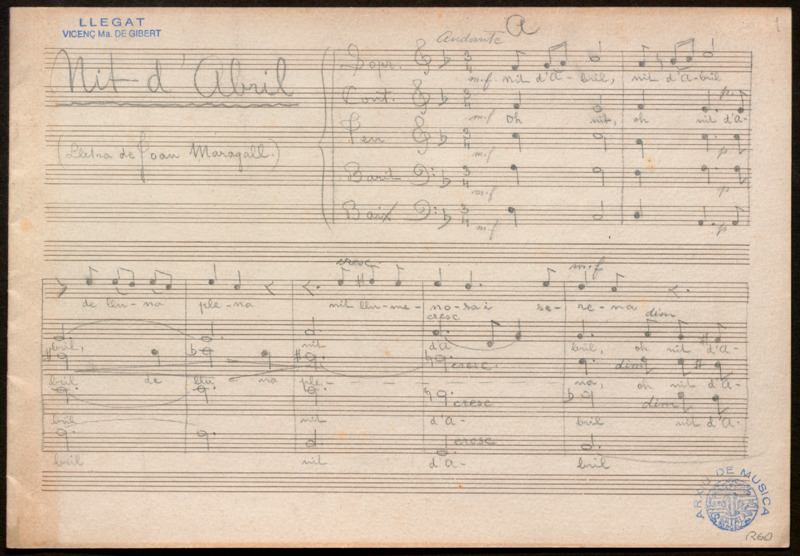 LLEGAT
VICENÇ Ma. DE GIBERT
Andante A 1
Nit d'Abril
(Lletra de Joan Maragall.)
Sopr. m.f nit d'A-bril, nit d'A-bril
Cont. m.f oh nit, oh nit d'A- p.
Ten m.f p
Barít m.f p
Baix m.f p
cresc. m.f
de llu-na ple-na nit llu-mi-no-sa i se-re-na
cresc dim
bril, nit d'A bril, oh nit d'A-
cresc. dim
bril de llu-na ple- na, oh nit d'A-
cresc dim
bril nit d'A- bril nit d'A-
cresc
bril nit d'A- bril
ARXIU DE MUSICA
R60